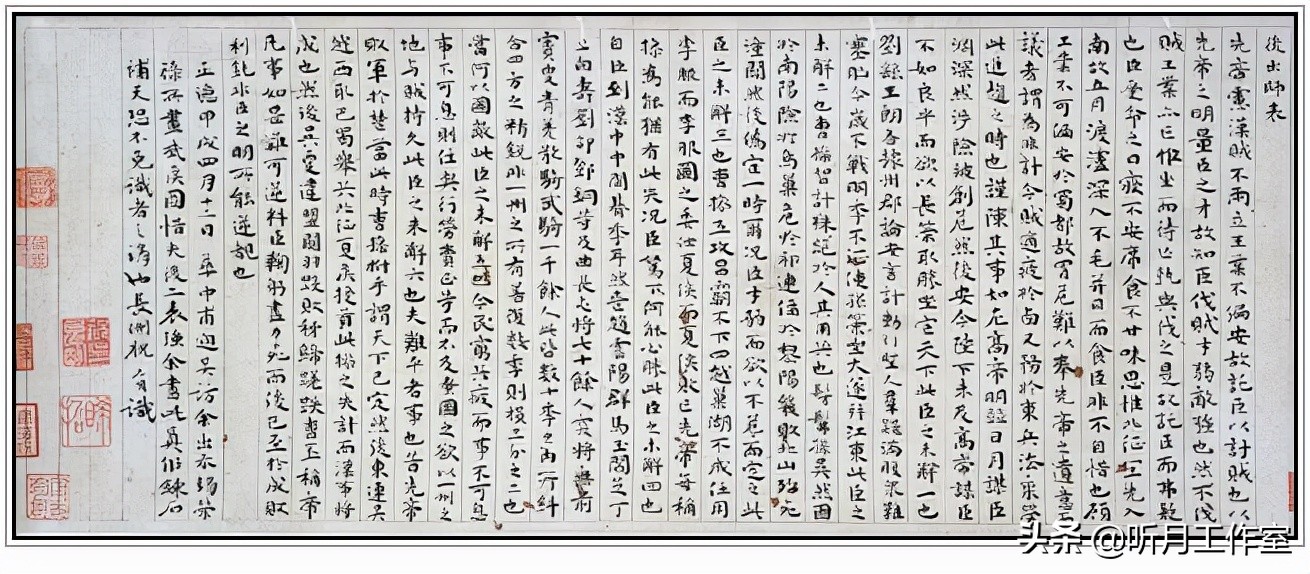 後出師表
先帝慮漢賊不兩立王業不偏安故託臣以討賊也以
先帝之明量臣之才故知臣伐賊才弱敵強也然不伐
賊王業亦亡惟坐而待亡孰與伐之是故託臣而弗疑
也臣受命之日寢不安席食不甘味思惟北征宜先入
南故五月渡瀘深入不毛并日而食臣非不自惜也顧
王業不可偏安於蜀都故冒危難以奉先帝之遺意而
議者謂為非計今賊適疲於西又務於東兵法乘勞
此進趨之時也謹陳其事如左高帝明並日月謀臣
淵深然涉險被創危然後安今陛下未及高帝謀臣
不如良平而欲以長策取勝坐定天下此臣之未解一也
劉繇王朗各據州郡論安言計動引聖人群疑滿腹眾難
塞胸今歲不戰明年不征使孫策坐大遂并江東此臣之
未解二也曹操智計殊絕於人其用兵也髣髴孫吳然困
於南陽險於烏巢危於祁連偪於黎陽幾敗北山殆死
潼關然後偽定一時爾況臣才弱而欲以不危而定之此
臣之未解三也曹操五攻昌霸不下四越巢湖不成任用
李服而李服圖之委任夏侯而夏侯敗亡先帝每稱
操為能猶有此失況臣駑下何能必勝此臣之未解四也
自臣到漢中中間朞年耳然喪趙雲陽群馬玉閻芝丁
立白壽劉郃鄧銅等及曲長屯將七十餘人突將無前
賨叟青羌散騎武騎一千餘人此皆數十年之內所糾
合四方之精銳非一州之所有若復數年則損三分之二也
當何以圖敵此臣之未解五也今民窮兵疲而事不可息
事不可息則住與行勞費正等而不及蚤圖之欲以一州之
地与賊持久此臣之未解六也夫難平者事也昔先帝
敗軍於楚當此時曹操拊手謂天下已定然後東連吳
越西取巴蜀舉兵北征夏侯授首此操之失計而漢事將
成也然後吳更違盟關羽毀敗秭歸蹉跌曹丕稱帝
凡事如是難可逆料臣鞠躬盡力死而後已至於成敗
利鈍非臣之明所能逆覩也
正德甲戌四月十二日華中甫過吳訪余出示趙榮
祿所畫武侯圖惜失後二表強余書此真作鍊石
補天恐不免識者之誚也長洲祝允識
头条 @听月工作室